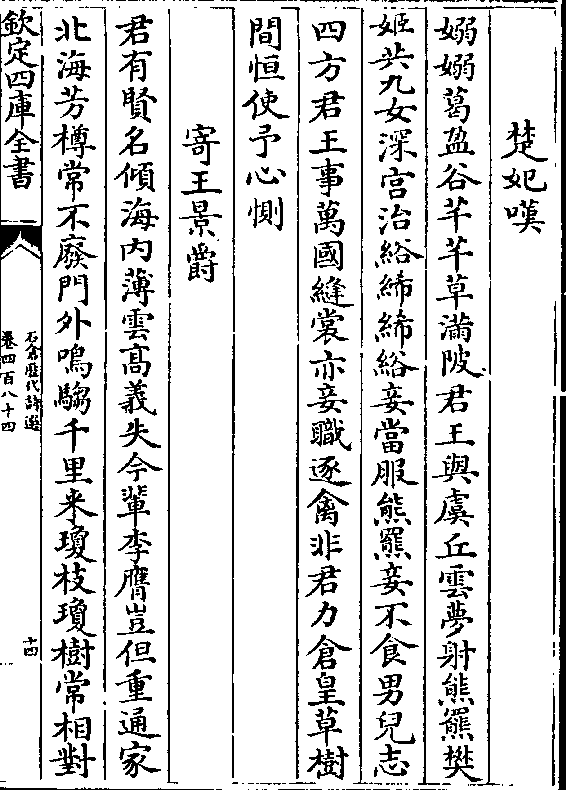 楚妃嘆
嫋嫋葛盈谷芊芊草滿陂君王與虞丘雲夢射熊羆樊
姬共九女深宮治綌絺絺綌妾當服熊羆妾不食男兒志
四方君王事萬國縫裳亦妾職逐禽非君力倉皇草樹
間恒使予心惻
寄王景爵
君有賢名傾海内薄雲髙義失今輩李膺豈但重通家
北海芳樽常不廢門外鳴騶千里来瓊枝瓊樹常相對
欽定四庫全書
石倉歷代詩選
卷四百八十四
十四